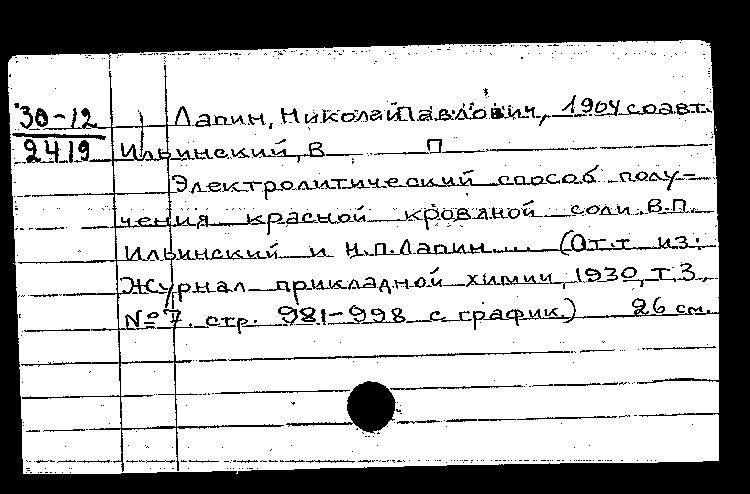 30-12
2419
Лапин, Николай Павлович, 1904 соавт.
Ильинский, В П
Электролитический способ полу-
чения красной кровяной соли. В.П.
Ильинский и Н.П. Лапин... (От.т из:
Журнал прикладной химии, 1930, т. 3,
№ 7. стр. 981-998 с. график.) 26 см.